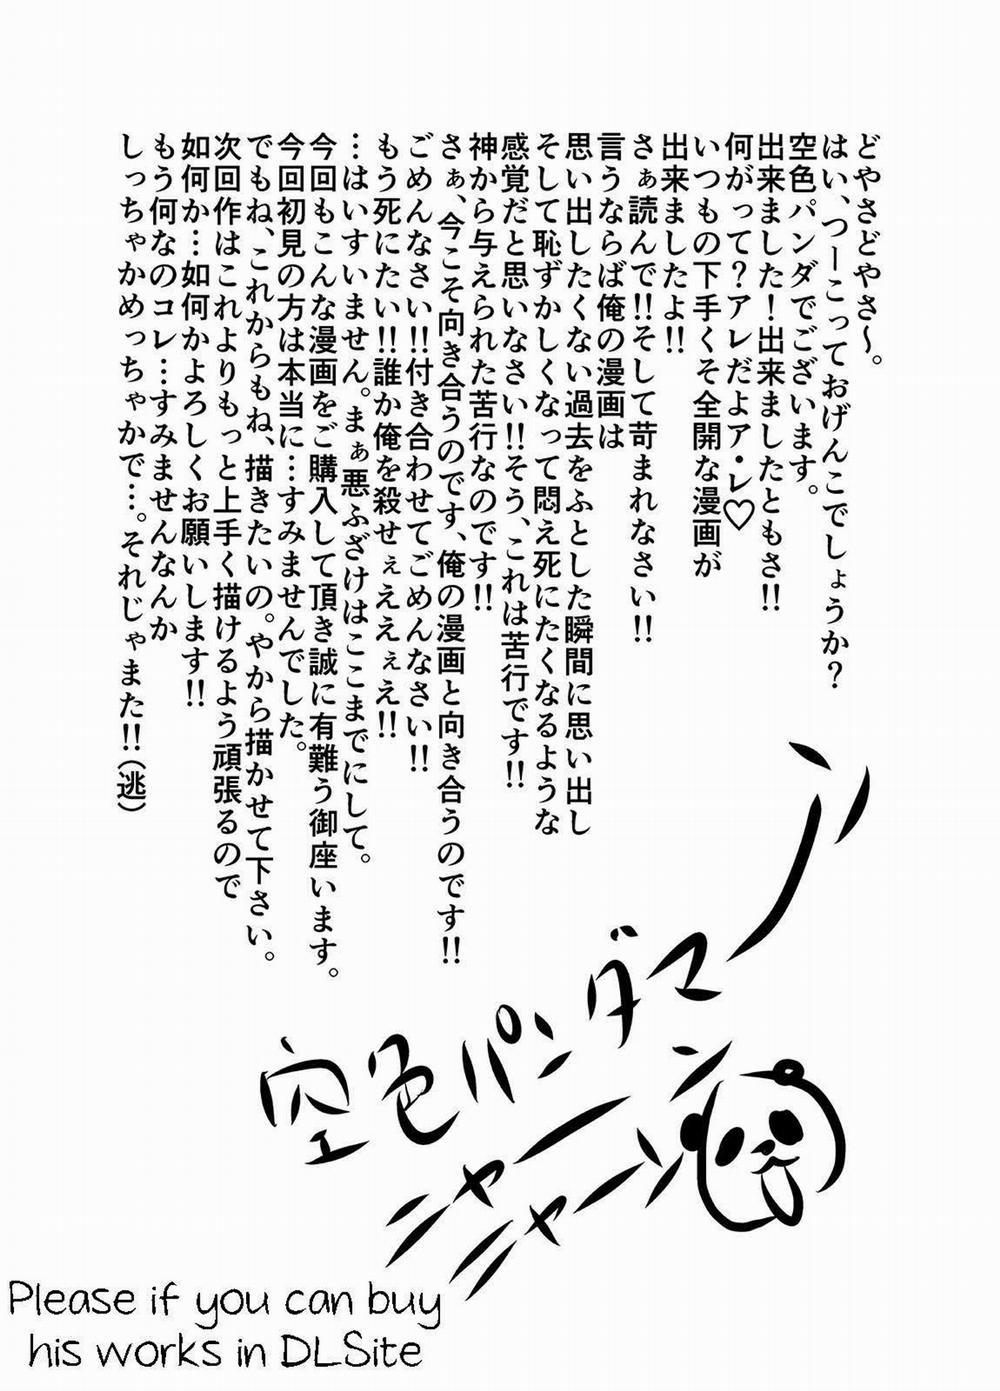 どやさどやさ～。
はい、つーこっておげんこでしょうか？
空色パンダでございます。
出来ました！出来ましたともさ!!
何がって？アレだよア・レ♡
いつもの下手くそ全開な漫画が
出来ましたよ!!
さぁ読んで!!そして苛まれなさい!!
言うならば俺の漫画は
思い出したくない過去をふとした瞬間に思い出し
そして恥ずかしくなって悶え死にたくなるような
感覚だと思いなさい!!そう、これは苦行です!!
神から与えられた苦行なのです!!
さぁ、今こそ向き合うのです、俺の漫画と向き合うのです!!
ごめんなさい!!付き合わせてごめんなさい!!
もう死にたい!!誰か俺を殺せぇええぇえ!!
…はいすいません。まぁ悪ふざけはここまでにして。
今回もこんな漫画をご購入して頂き誠に有難う御座います。
今回初見の方は本当に…すみませんでした。
でもね、これからもね、描きたいの。やから描かせて下さい。
次回作はこれよりもっと上手く描けるよう頑張るので
如何か…如何かよろしくお願いします!!
もう何なのコレ…すみませんなんか
しっちゃかめっちゃかで…。それじゃまた!!（逃）
空色パンダマーン
ニャーーン
ニャーン
Please if you can buy
his works in DLSite